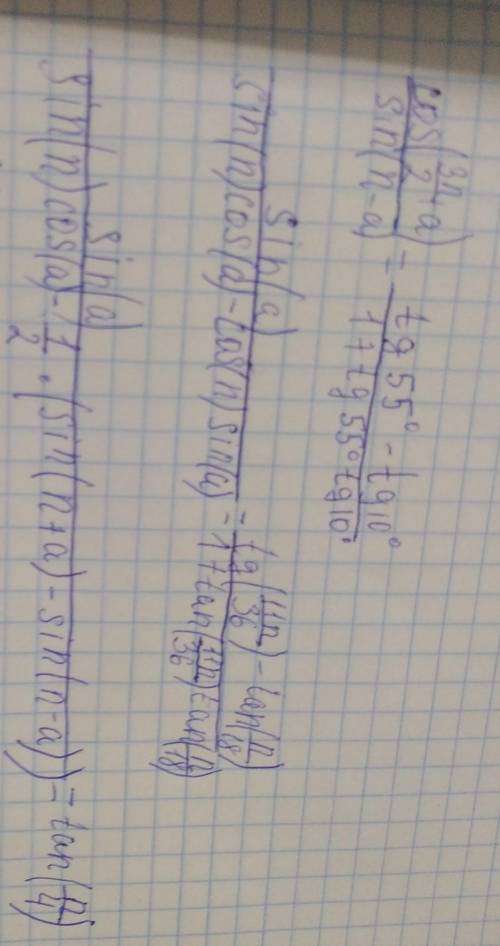 cos(3π/2+a)/sin(π-a) = tg 55° - tg10°/1+tg 55° tg10°
sin(a)/sin(π)cos(a)-cos(π)sin(a) = tg(11π/36)-tan(π/18)/1+tan(11π/36)tan(π/18)
sin(a)/sin(π)cos(a)-1/2·(sin(π+a)-sin(π-a)) = tan(π/4)